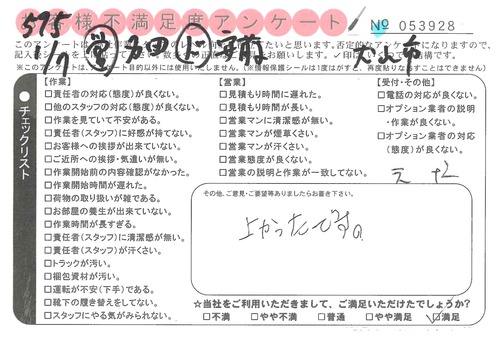 お客様不満足度アンケート
№ 053928
575
1/7
犬山市
【作業】
□責任者の対応(態度)が良くない。
□他のスタッフの対応(態度)が良くない。
□作業を見ていて不安がある。
□責任者(スタッフ)に好感が持てない。
□お客様への挨拶が出来ていない。
□ご近所への挨拶・気遣いが無い。
□作業開始前の内容確認がなかった。
□作業開始時間が遅れた。
□荷物の取り扱いが雑である。
□お部屋の養生が出来ていない。
□作業時間が長すぎる。
□責任者(スタッフ)に清潔感が無い。
□責任者(スタッフ)が汗くさい。
□トラックが汚い。
□梱包資材が汚い。
□運転が不安(下手)である。
□靴下の履き替えをしてない。
□スタッフにやる気がみられない。
【営業】
□見積もり時間に遅れた。
□見積もり時間が長い。
□営業マンに清潔感が無い。
□営業マンが煙草くさい。
□営業マンが汗くさい。
□営業態度が良くない。
□営業の説明と作業が一致してない。
【受付・その他】
□電話の対応が良くない。
□オプション業者の説明
・作業が良くない。
□オプション業者の対応
(態度)が良くない。
チェックリスト
その他、ご意見・ご要望等ありましたらお書き下さい。
よかったです。
☆当社をご利用いただきまして、ご満足いただけたでしょうか?
□不満 □やや不満 □普通 □やや満足 ☑満足